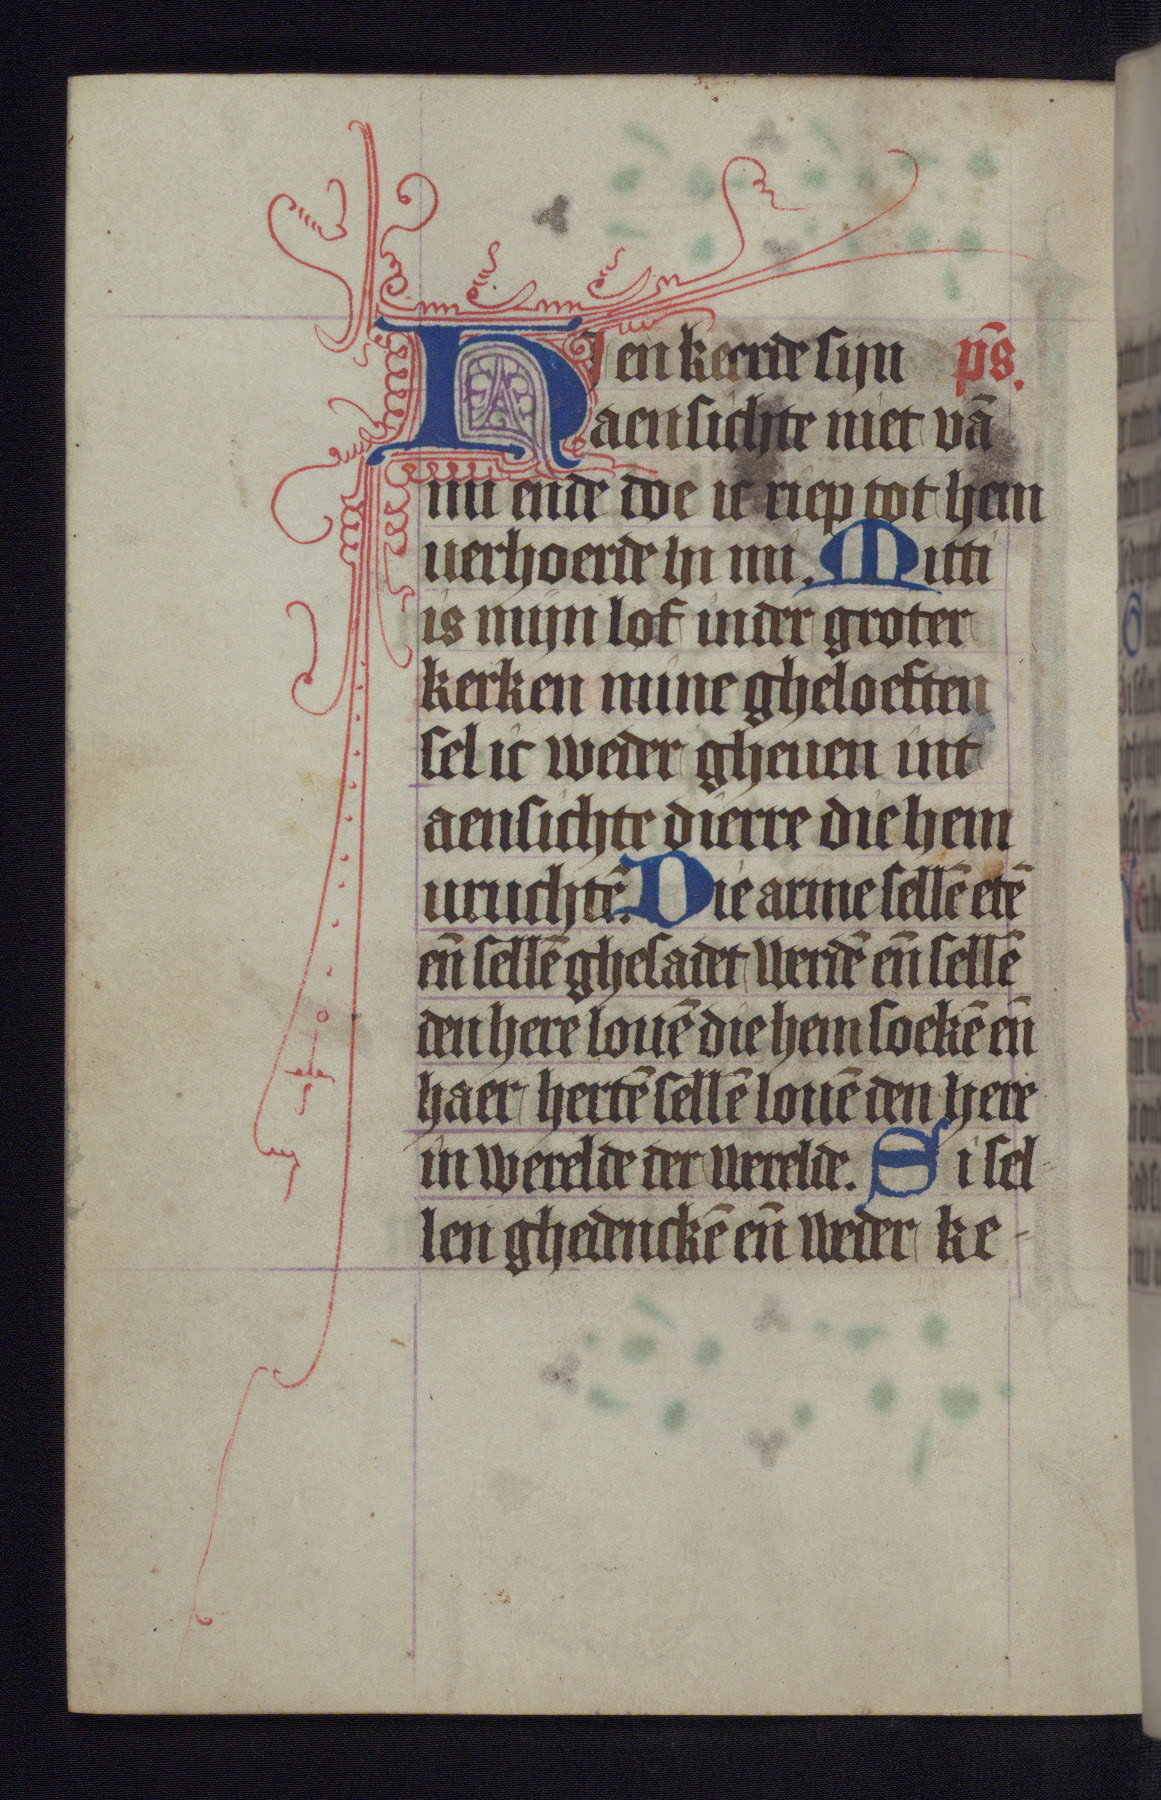 Hi en keerde sijn p̄s.
aensichte niet vā
mi ende doe ic riep tot hem
uerhoerde hi mi. Mitti
is mijn lof in der groter
kerken mine gheloeften
sel ic weder gheuen int
aensichte dierre die hem
uruchtē. Die arme sellē etē
eñ sellē ghesadet werdē eñ sellē
den here louē die hem soekē eñ
haer hertē sellē louē den here
in werelde der werelde. Si sel
len ghedenckē eñ weder ke-